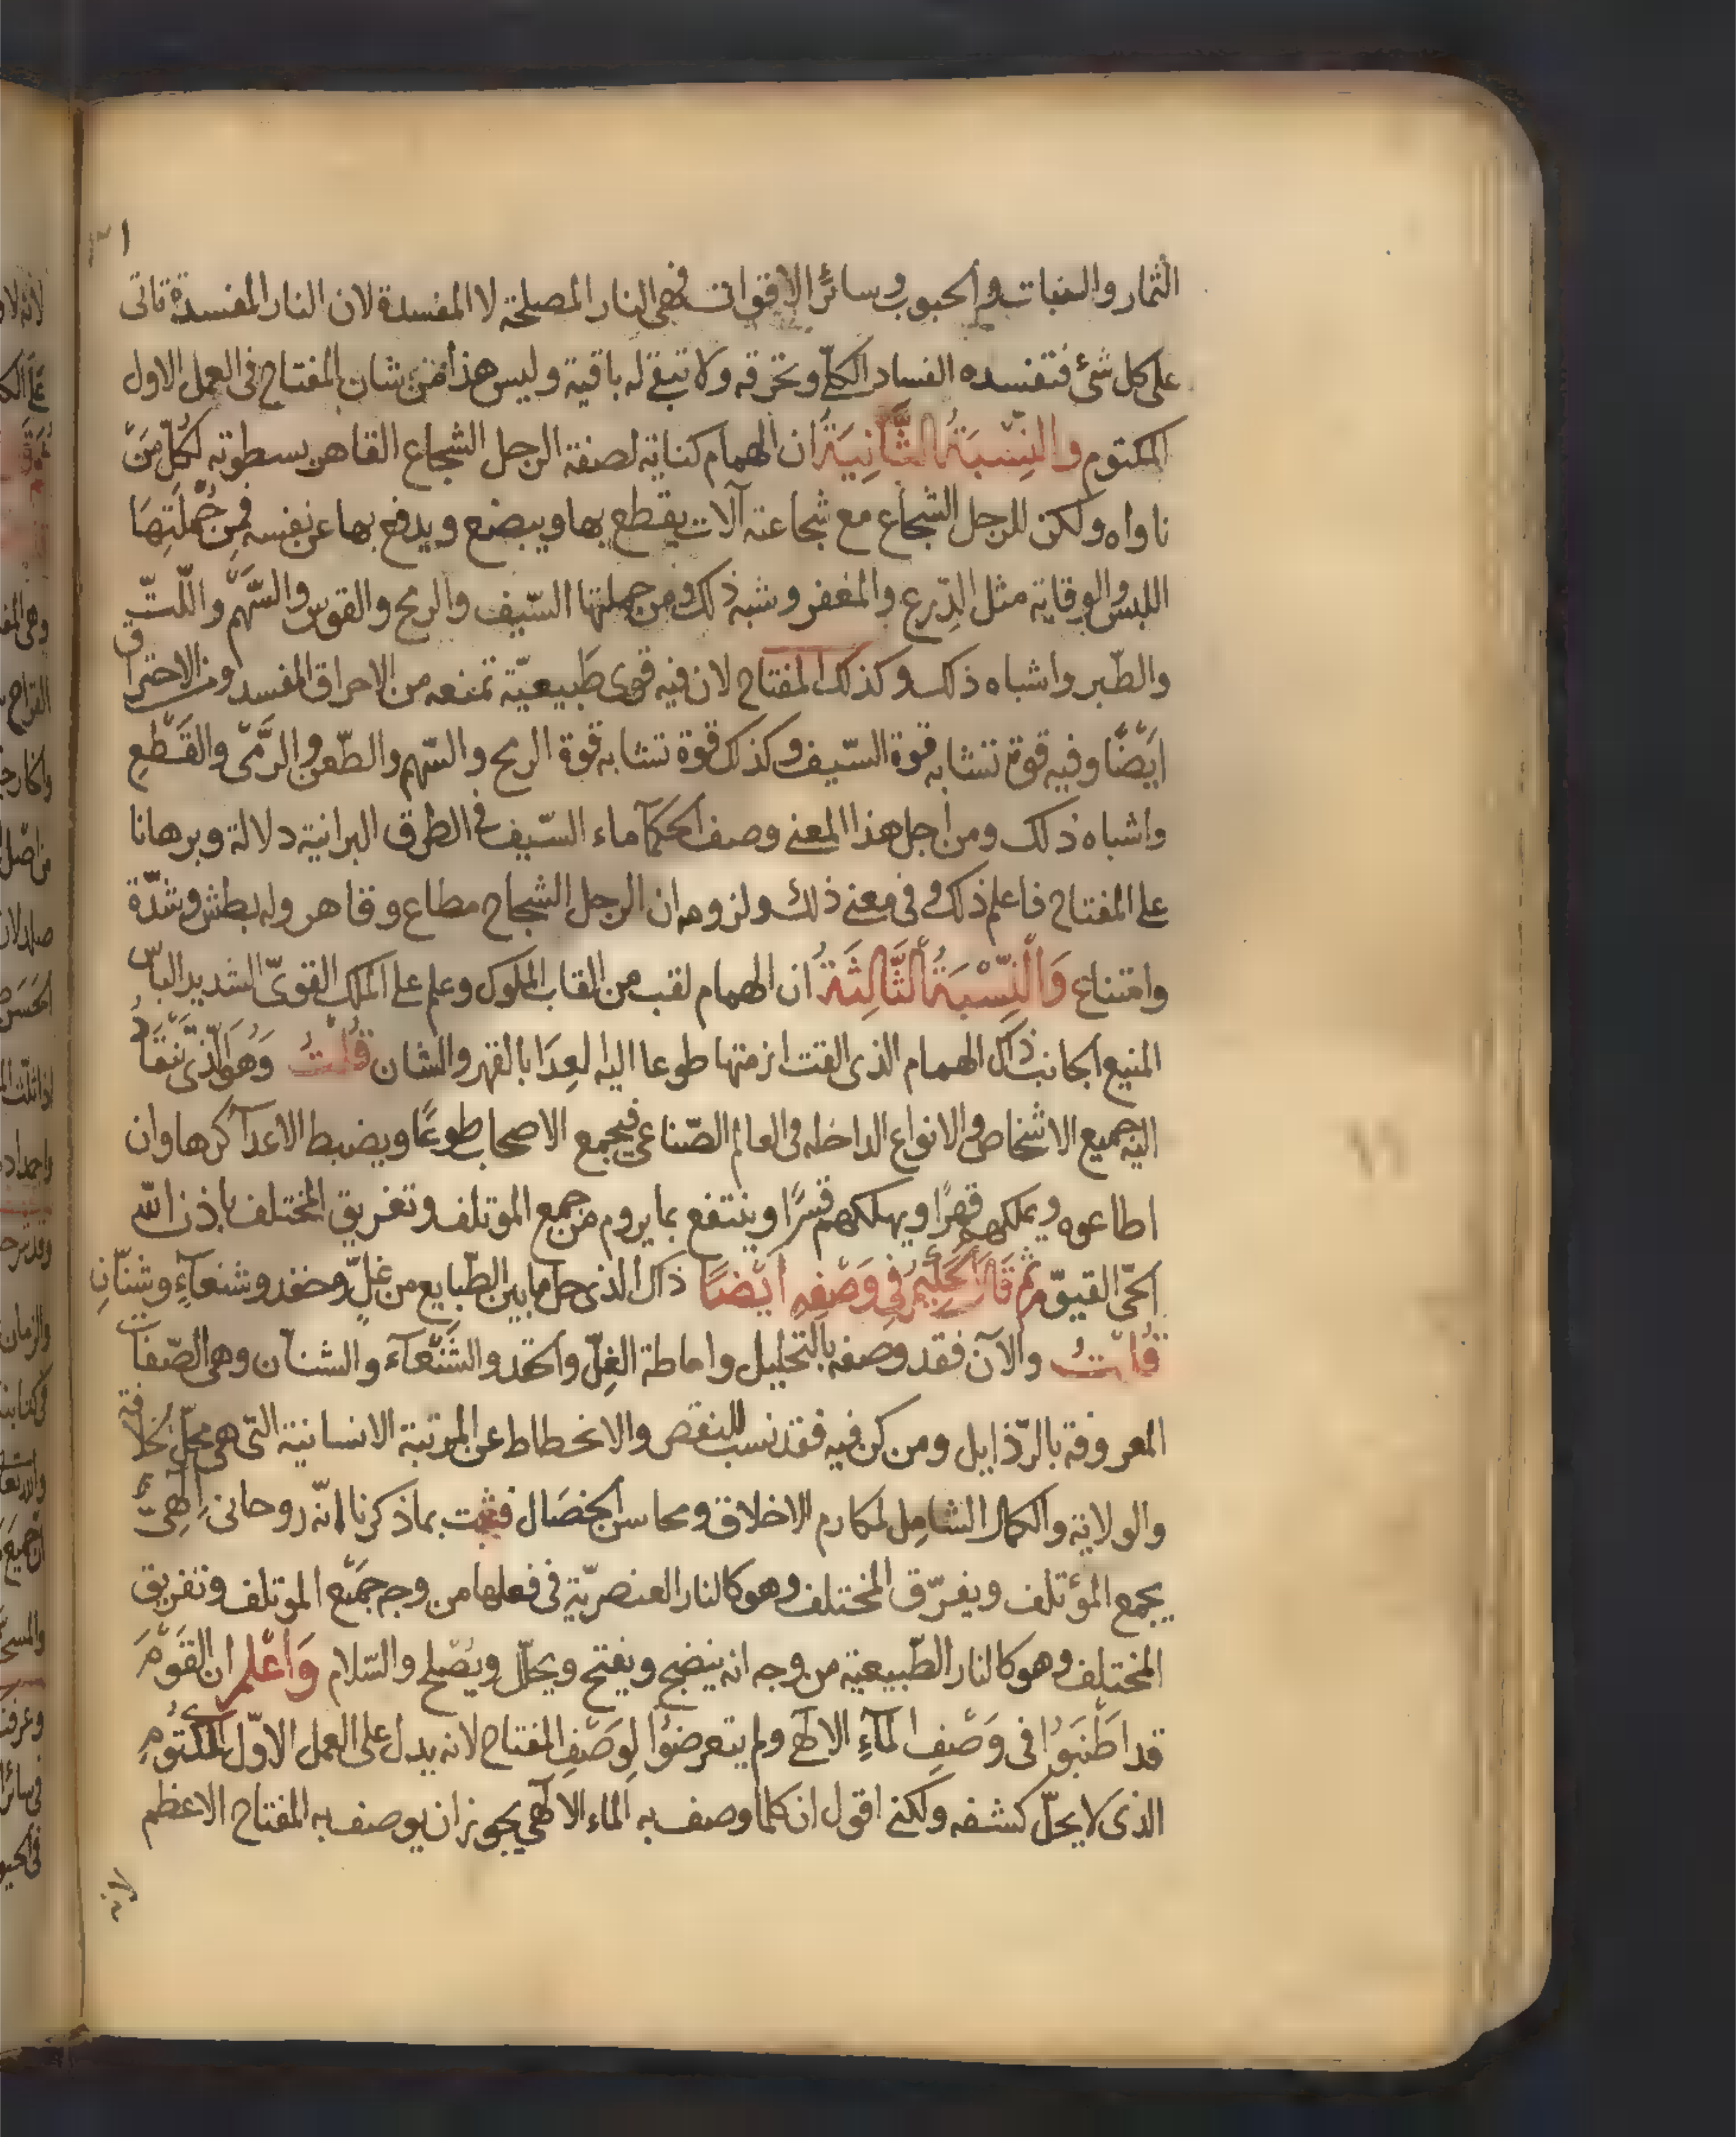 الثمار والنبات والحبوب وسائر الاقوات فهى النار المصلحة لا المفسدة لان النار المفسدة تاتى
على كل شئ فتفسده الفساد الكلّى وتحرقه ولا تبقى له باقية وليس هذا من شان المفتاح فى العمل الاول
المكتوم والنِّسْبَةُ الثَّانِيَةُ ان الهمام كناية لصفة الرجل الشجاع القاهر بسطوته لكُلِّ مَنْ
ناواه ولكن للرجل الشجاع مع شجاعته آلات يقطع بها ويبضع ويدفع بها عن نفسه فمِن جُمْلَتِهَا
اللبس والوقاية مثل الدِّرع والمغفر وشبه ذلك ومن جملتها السّيف والرمح والقوس والسَّهْم واللّتّ
والطّبر واشباه ذلك وكذلك المفتاح لان فيه قوى طَبيعيّة تمنعه من الاحراق المفسد ومن الاحتراق
ايَضًا وفيه قوة تشابه قوة السّيف وكذلك قوة تشابه قوة الرمح والسّهم والطّعن والرَّمْى والقَطْعِ
واشباه ذلك ومن اجل هذا المعنى وصف الحكمآ ماء السّيف فى الطرق البرانية دلالة وبرهانا
على المفتاح فاعلم ذلك وفى معنى ذلك ولزومه ان الرجل الشجاع مطاع وقاهر وله بطش وشدّة
وامتناع وَالْنِّسْبَةُ الثَّالِثَةُ ان الهمام لقب من القاب الملوك وعلم على الملك القوىّ الشديد الباس
المنيع الجانب ذاك الهمام الذى القت ازمتها طوعا اليه لعِدَا بالقهر والشان قُلْتُ وَهُوَ الّذى تَنْقَادُ
اليه جميع الاشخاص والانواع الداخله فى العالم الصّناعى فيجمع الاصحاب طوعًا ويضبط الاعدآ كرها وان
اطاعوه ويملكهم قهرًا ويهلكهم قسرًا وينتفع بما يروم من جمع الموتلف وتفريق المختلف باذن الله
الحّى القيوّم ثم قَالَ الحَكِيْمُ فِى وَصْفِهِ ايْضًا ذاك الذى حل ما بين الطّبايع من غلٍّ وحقد وشنعآءٍ وشنّانِ
قُلْتُ والآن فقد وصفه بالتحليل واماطة الغِلّ والحقد والشَّنْعآء والشنآن وهى الصّفات
المعروفة بالرّذايل ومن كن فيه فقد نسب للنقص والانحطاط عن المرتبة الانسانية التى هى محلّ الخلافة
والولاية والكمال الشامِل لمكارم الاخلاق ومحاسن الخصَال فثبت بما ذكرنا انّه روحانى اِلهِىّ
يجمع المؤتلف ويفرّق المختلف وهو كالنار العنصريّة فى فعلها من وجه جَمْع الموتلف وتفريق
المختلف وهو كالنار الطّبيعية من وجه انه ينضج ويفتح ويحلّل ويصْلح والسّلام وَاْعْلم ان القَوْمَ
قد اطْنَبَوُا فى وَصْفِ المآءِ الالهى ولم يتعرضوُا لِوَصْفِ المفتاح لانه يدل على العمل الاوّل المكْتُومِ
الذى لا يحلّ كشفه ولكنى اقول ان كلما وصف به الماء الالهى يجوز ان يوصف به المفتاح الاعظم
لانه